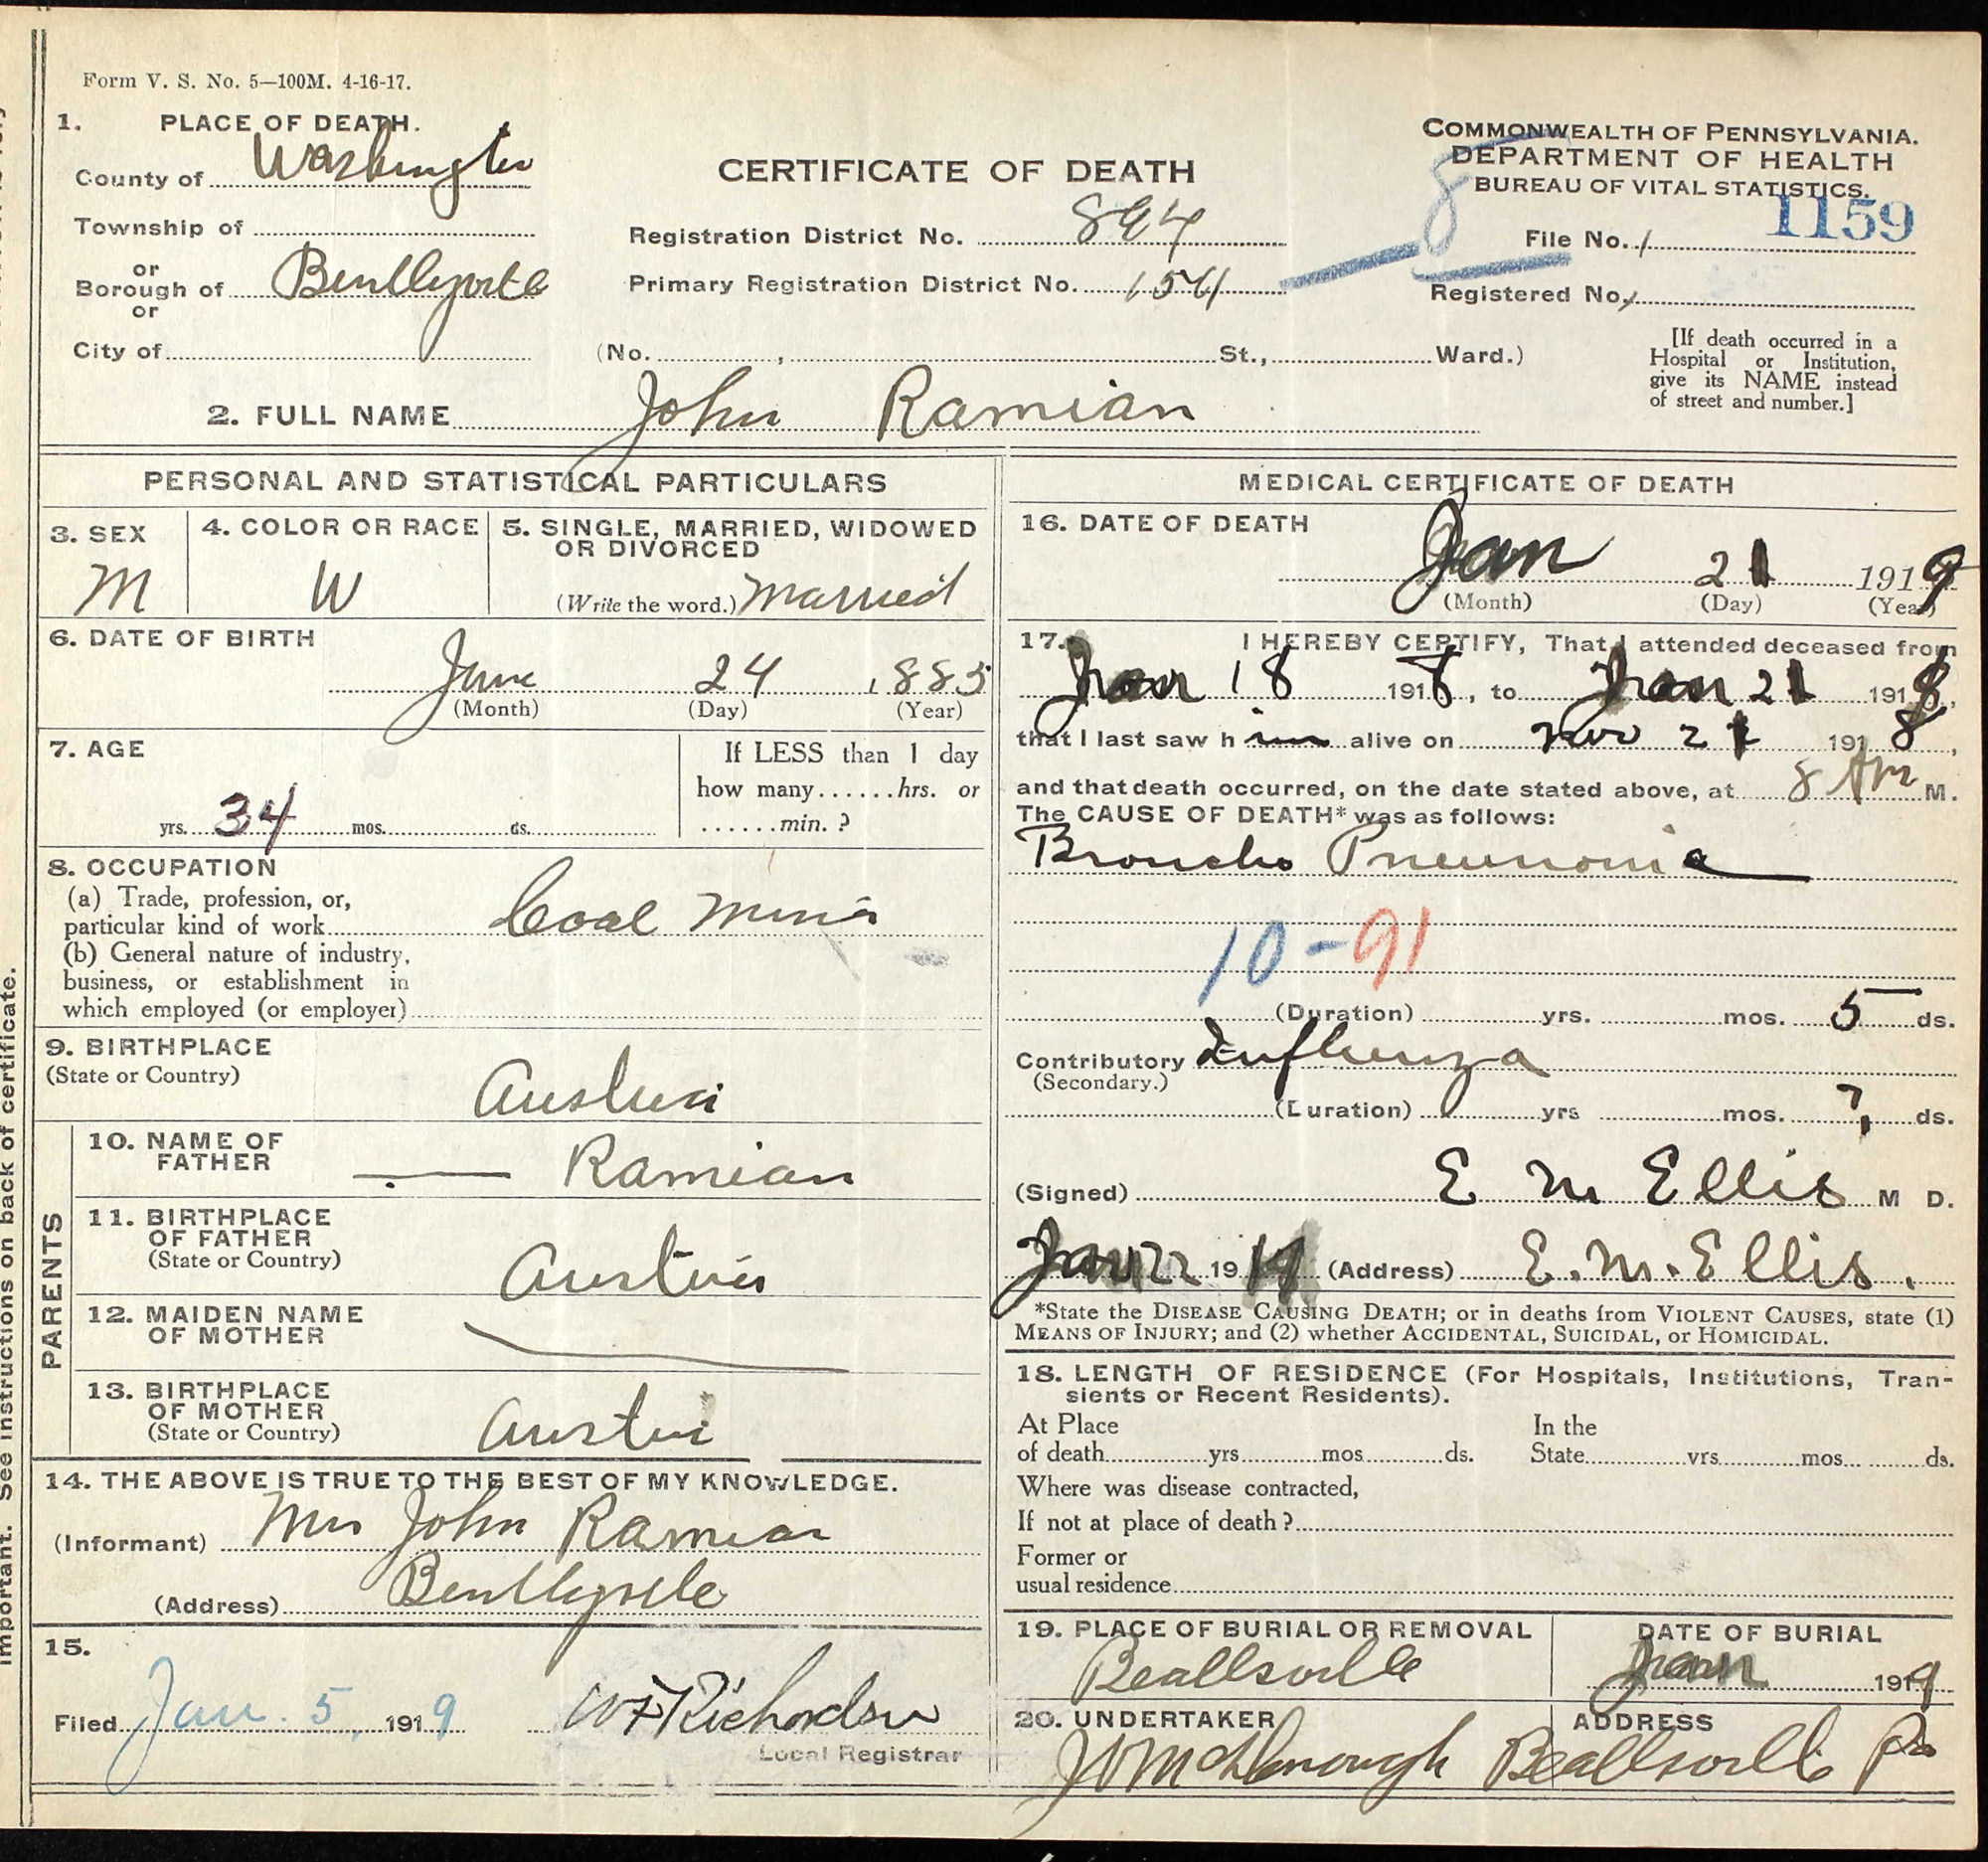 Form V. S. No. 5—100M. 4-16-17.
1. PLACE OF DEATH.
County of Washington
Township of
or
Borough of Bentleyville
or
City of
CERTIFICATE OF DEATH
Registration District No. 894
Primary Registration District No. 1541
COMMONWEALTH OF PENNSYLVANIA.
DEPARTMENT OF HEALTH
BUREAU OF VITAL STATISTICS.
File No. 1159
Registered No.
(No. , St., Ward.)
[If death occurred in a
Hospital or Institution,
give its NAME instead
of street and number.]
2. FULL NAME John Ramian
PERSONAL AND STATISTICAL PARTICULARS
3. SEX
M
4. COLOR OR RACE
W
5. SINGLE, MARRIED, WIDOWED
OR DIVORCED
(Write the word.) Married
6. DATE OF BIRTH
June 24 1885
(Month) (Day) (Year)
7. AGE
yrs. 34 mos. ds.
If LESS than 1 day
how many......hrs. or
......min. ?
8. OCCUPATION
(a) Trade, profession, or,
particular kind of work Coal Miner
(b) General nature of industry,
business, or establishment in
which employed (or employer)
9. BIRTHPLACE
(State or Country)
Austria
PARENTS
10. NAME OF
FATHER
— Ramian
11. BIRTHPLACE
OF FATHER
(State or Country)
Austria
12. MAIDEN NAME
OF MOTHER
13. BIRTHPLACE
OF MOTHER
(State or Country)
Austria
14. THE ABOVE IS TRUE TO THE BEST OF MY KNOWLEDGE.
(Informant) Mrs John Ramian
(Address) Bentleyville
15.
Filed Jan. 5, 1919 W F Richardson
Local Registrar
MEDICAL CERTIFICATE OF DEATH
16. DATE OF DEATH
Jan 21 1919
(Month) (Day) (Year)
17. I HEREBY CERTIFY, That I attended deceased from
Jan 18 1918, to Jan 21 191
that I last saw h im alive on Nov 21 1918,
and that death occurred, on the date stated above, at 8 AM M.
The CAUSE OF DEATH* was as follows:
Broncho Pneumonia
10-91
(Duration) yrs. mos. 5 ds.
Contributory Influenza
(Secondary.)
(Duration) yrs mos. 7 ds.
(Signed) E M Ellis M D.
Jan 22 19 (Address) E. M. Ellis.
*State the DISEASE CAUSING DEATH; or in deaths from VIOLENT CAUSES, state (1)
MEANS OF INJURY; and (2) whether ACCIDENTAL, SUICIDAL, or HOMICIDAL.
18. LENGTH OF RESIDENCE (For Hospitals, Institutions, Tran-
sients or Recent Residents).
At Place
of death yrs mos ds.
In the
State yrs mos ds.
Where was disease contracted,
If not at place of death ?
Former or
usual residence
19. PLACE OF BURIAL OR REMOVAL
Beallsville
DATE OF BURIAL
Jan 1919
20. UNDERTAKER
ADDRESS
Beallsville Pa
important. See instructions on back of certificate.